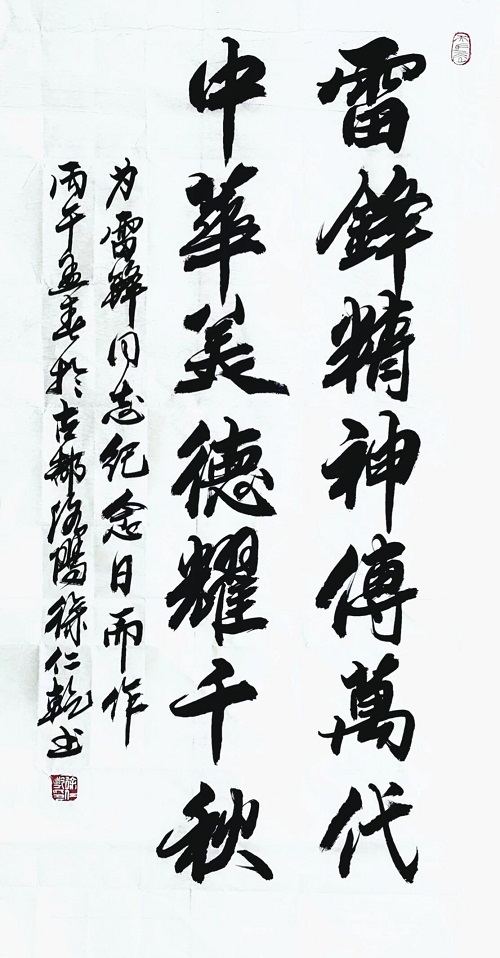 雷鋒精神傳萬代
中華美德耀千秋
为雷鋒同志紀念日而作
丙午孟春於古都洛陽徐仁乾书